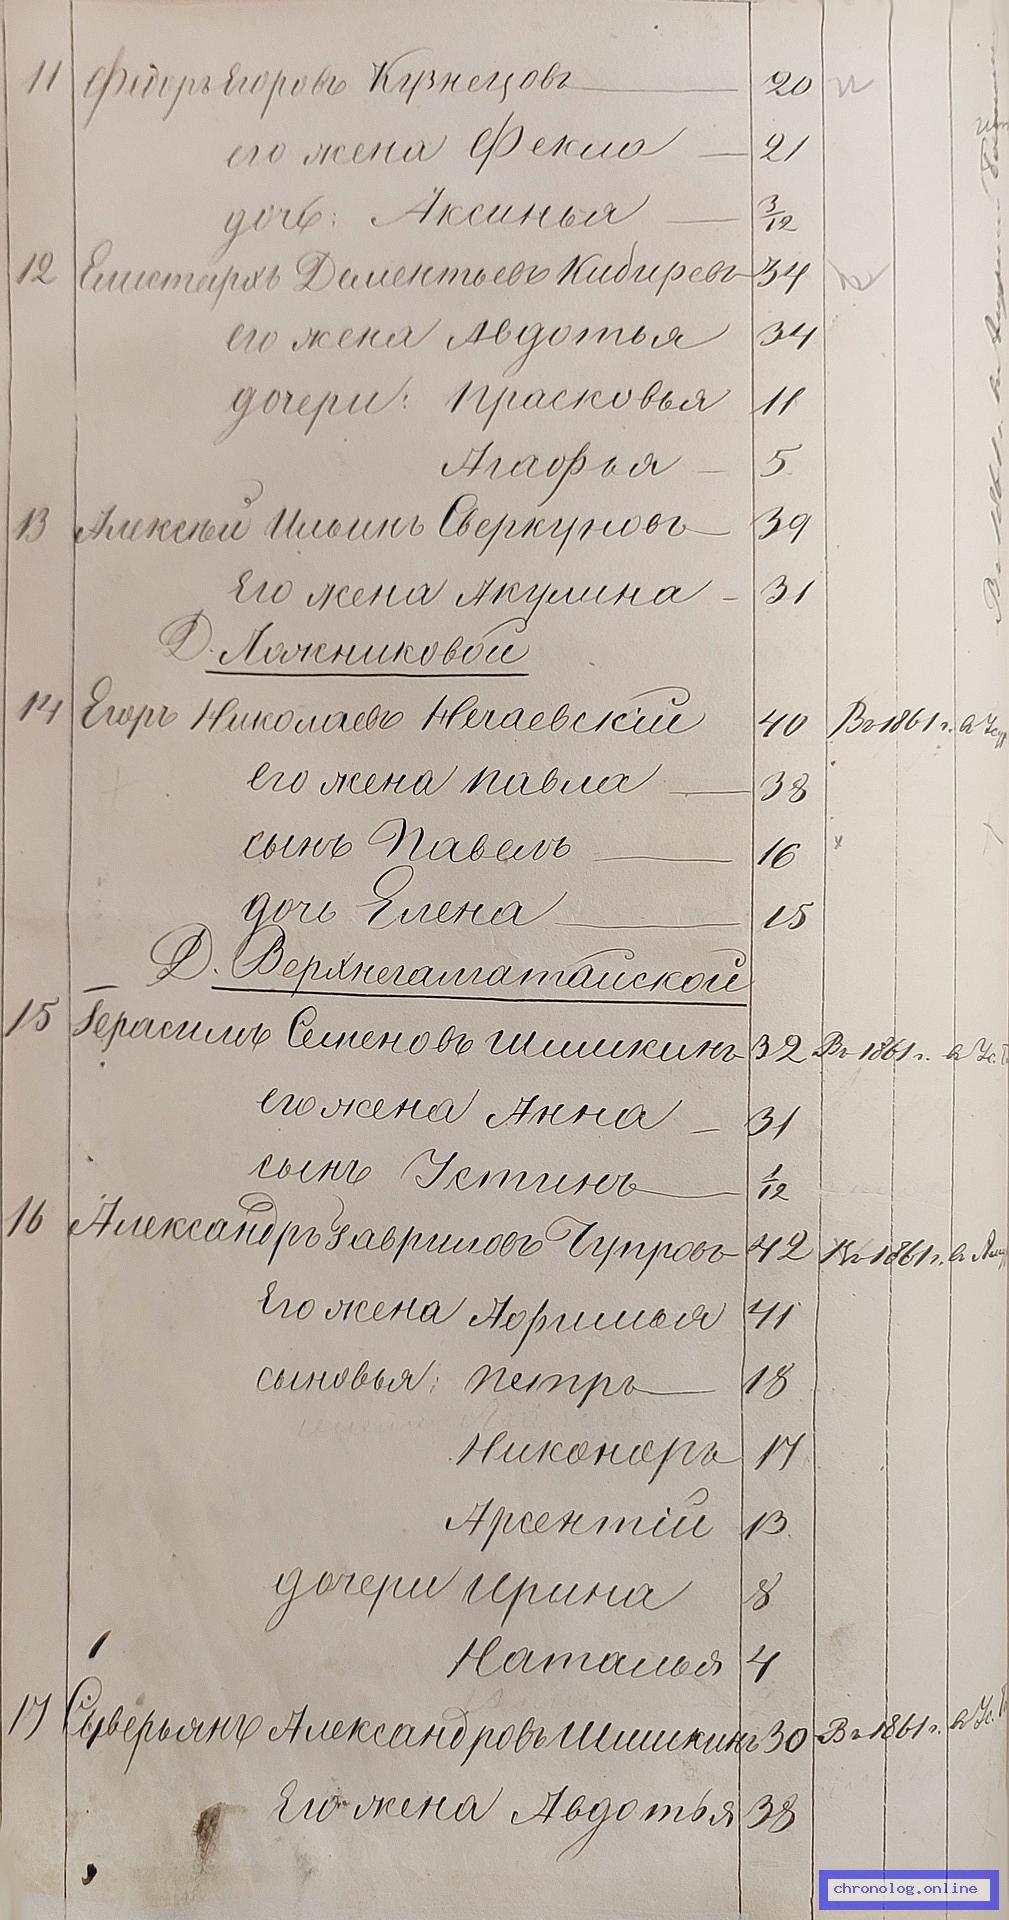 11 Федоръ Егоровъ Кузнецовъ 20
его жена Фекла 21
дочь: Аксинья 3/12
12 Елистархъ Дементьевъ Кибиревъ 34
его жена Авдотья 34
дочери: Прасковья 11
Агафья 5
13 Алексѣй Ильинъ Сверкуновъ 39
Его жена Акулина 31
Д. Ложниковой
14 Егоръ Николаевъ Нечаевскій 40 Въ 1861 г. в
его жена Павла 38
сынъ Павелъ 16
дочь Елена 15
Д. Верхнегалгатайской
15 Герасимъ Семеновъ Шишкинъ 32 Въ 1861 г. в
его жена Анна 31
сынъ Устинъ 1/12
16 Александръ Гавриловъ Чупровъ 42 Въ 1861 г. в
Его жена Афимья 41
сыновья: Петръ 18
Никоноръ 17
Арсентій 13
дочери Ирина 8
Наталья 4
17 Сыверьянъ Александровъ Шишкинъ 30 Въ 1861 г. в
Его жена Авдотья 38
chronolog.online